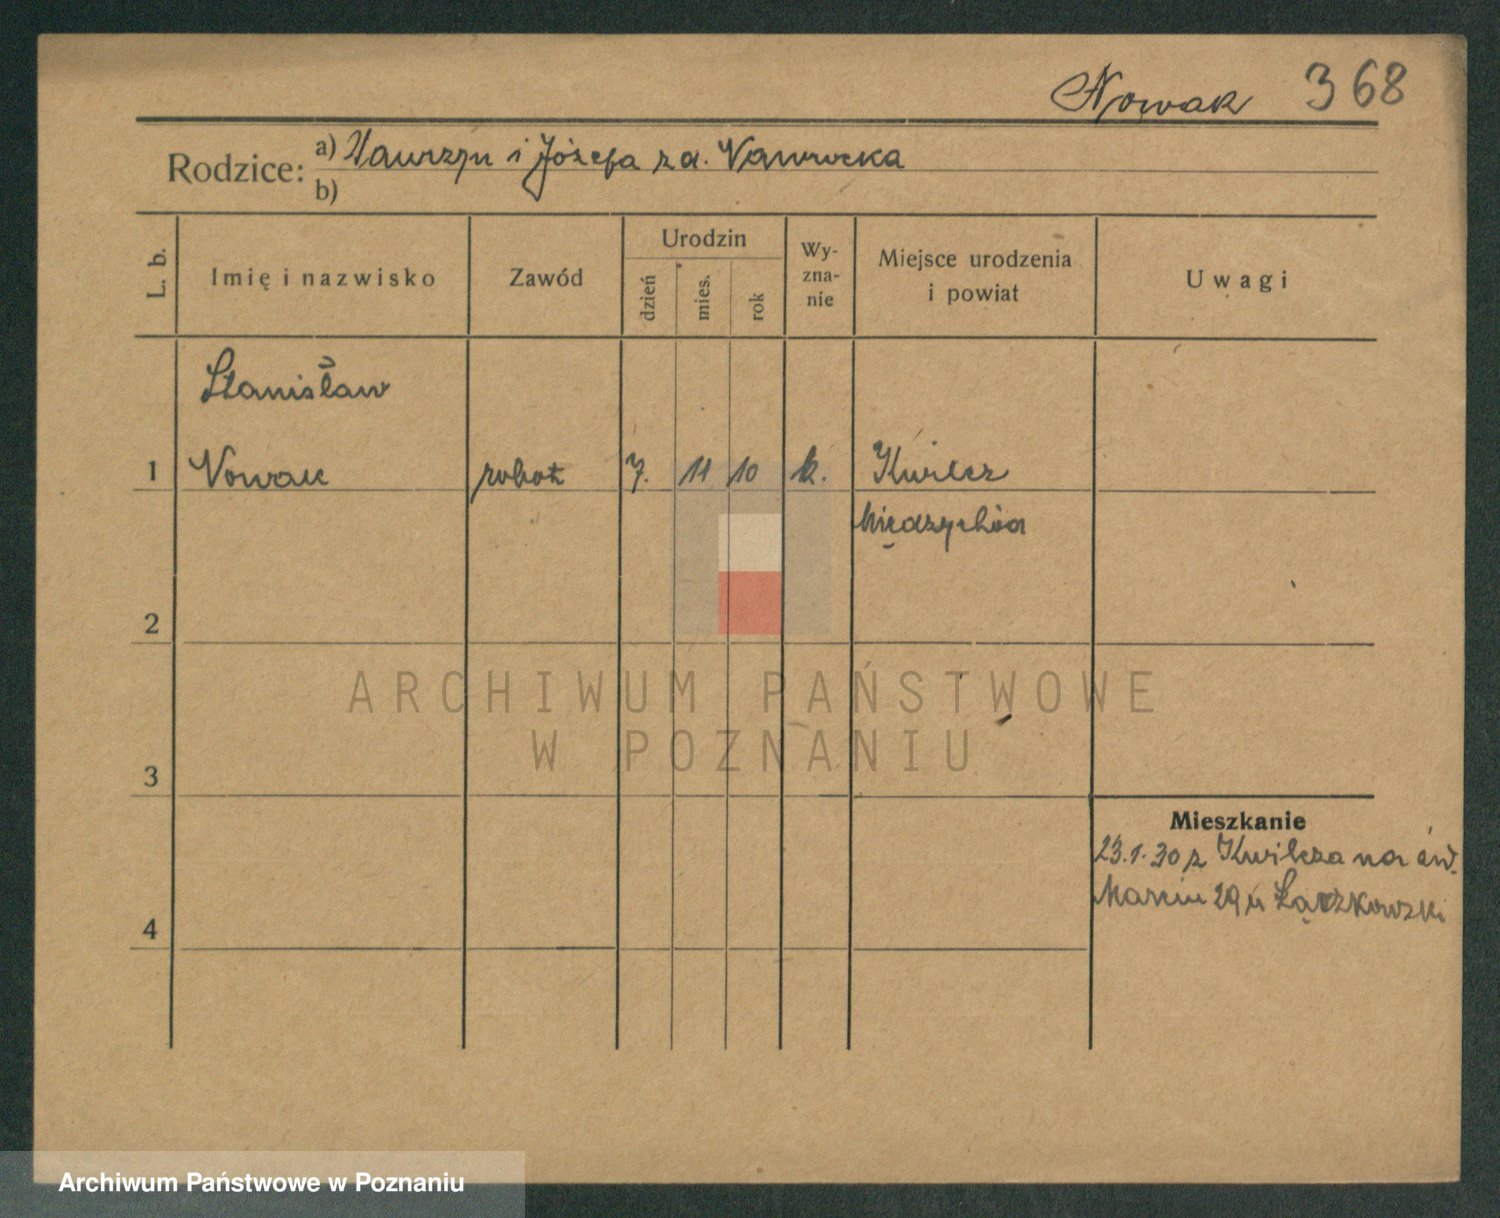 Nowak 368
Rodzice: a) Wawrzyn i Józefa z d. Nawrocka
b)
L. b.
Imię i nazwisko
Zawód
Urodzin
dzień
mies.
rok
Wy-
zna-
nie
Miejsce urodzenia
i powiat
Uwagi
Stanisław
1 Nowak robot 7. 11 10 k. Kwilcz
Międzychód
2
3
4
Mieszkanie
23.1.30 z Kwilcza na św.
Marcin 29 u Łączkowski
ARCHIWUM PAŃSTWOWE
W POZNANIU
Archiwum Państwowe w Poznaniu